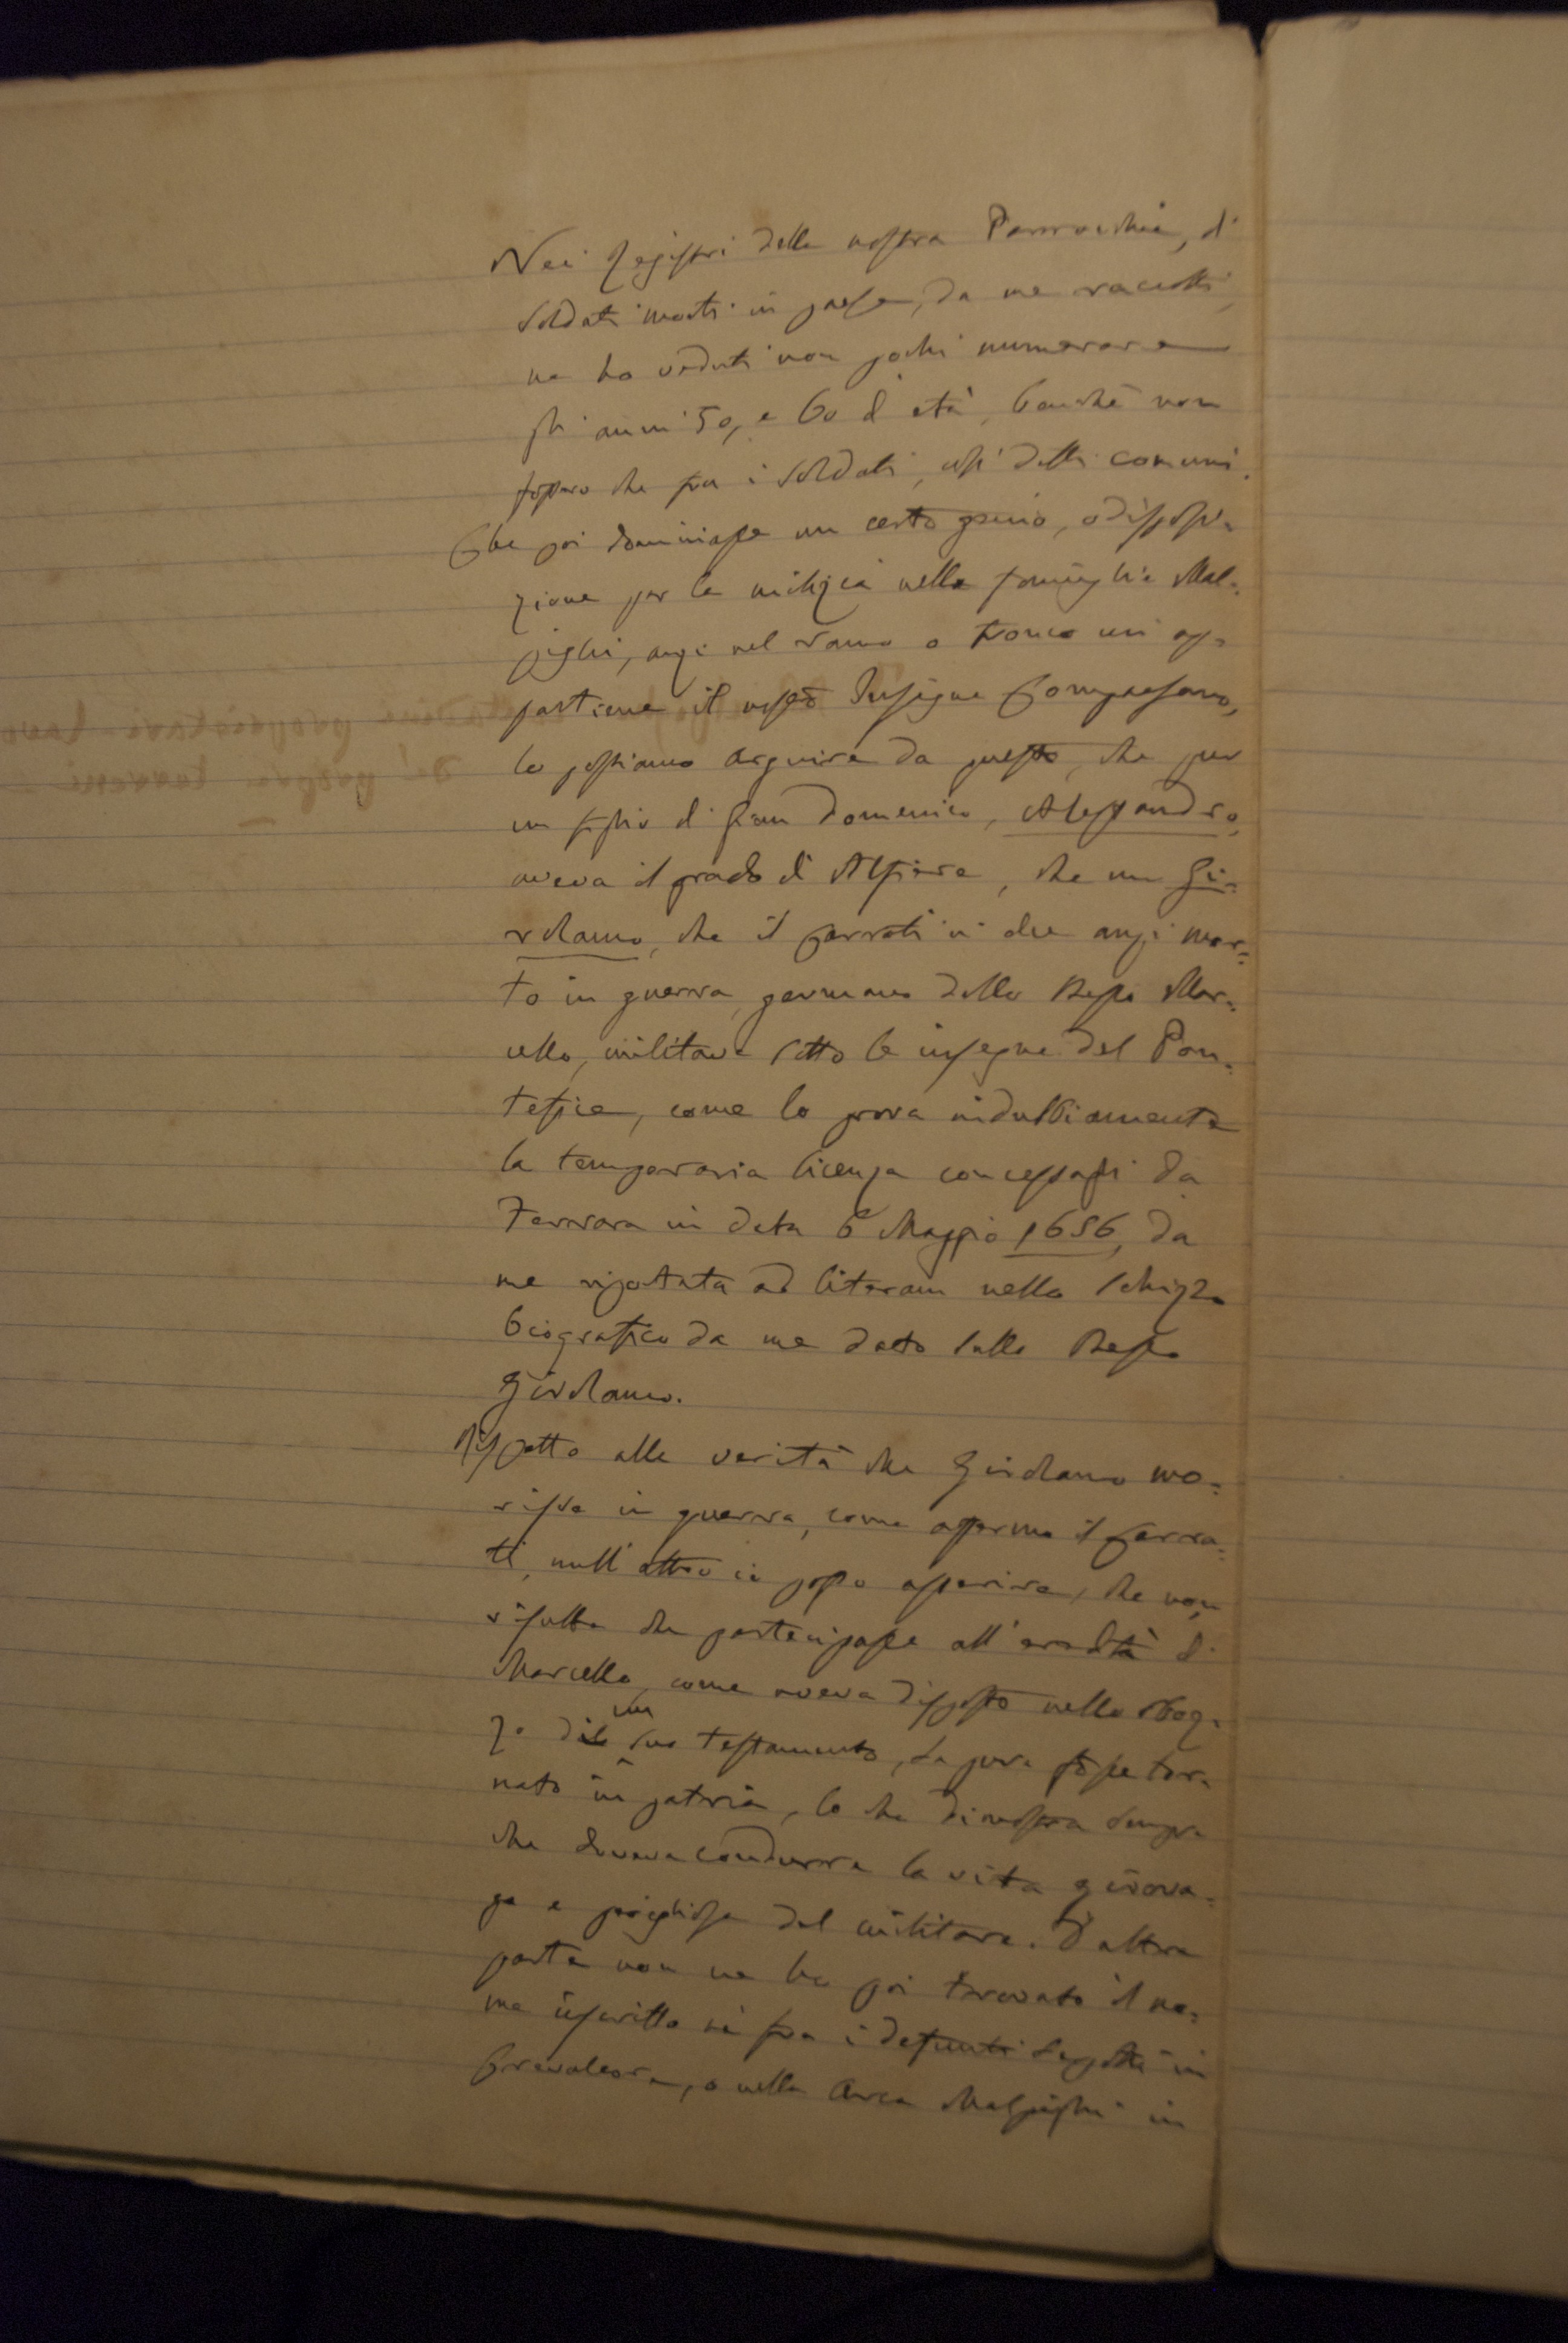 Nei Registri della nostra Parrocchia, di
soldati morti in paese, da me raccolti,
ne ho veduti non pochi numerare
gli anni 50, e 60 d'età, benchè non
fossero che fra i soldati, così detti comuni.
Che poi dominasse un certo genio, o disposi-
zione per la milizia nella famiglia Mal-
pighi, anzi nel ramo o tronco cui ap-
partiene il nostro Insigne Compaesano,
lo possiamo arguire da questo, che pur
un figlio di Gian Domenico, Alessandro,
aveva il grado di Alfiere, che un Gi-
rolamo, che il Ferrati ci dice anzi mor-
to in guerra, germano dello stesso Mar-
cello, militava sotto le insegne del Pon-
tefice, come lo prova indubbiamente
la temporaria licenza concessagli da
Ferrara in data 6 Maggio 1656, da
me riportata ad literam nello schizzo
biografico da me dato sullo stesso
Girolamo.
Rispetto alla verità che Girolamo mo-
risse in guerra, come afferma il Ferra-
ti, null'altro io posso asserire, che non
risulta che partecipasse all'eredità di
Marcello, come aveva disposto nello sboz-
zo di un suo testamento, se pure fosse tor-
nato in patria, lo che dimostra sempre
che doveva condurre la vita girova-
ga e perigliosa del militare. D'altra
parte non ne ho poi trovato il no-
me inscritto nè fra i defunti sepolti in
Crevalcore, o nella Arca Malpighi in